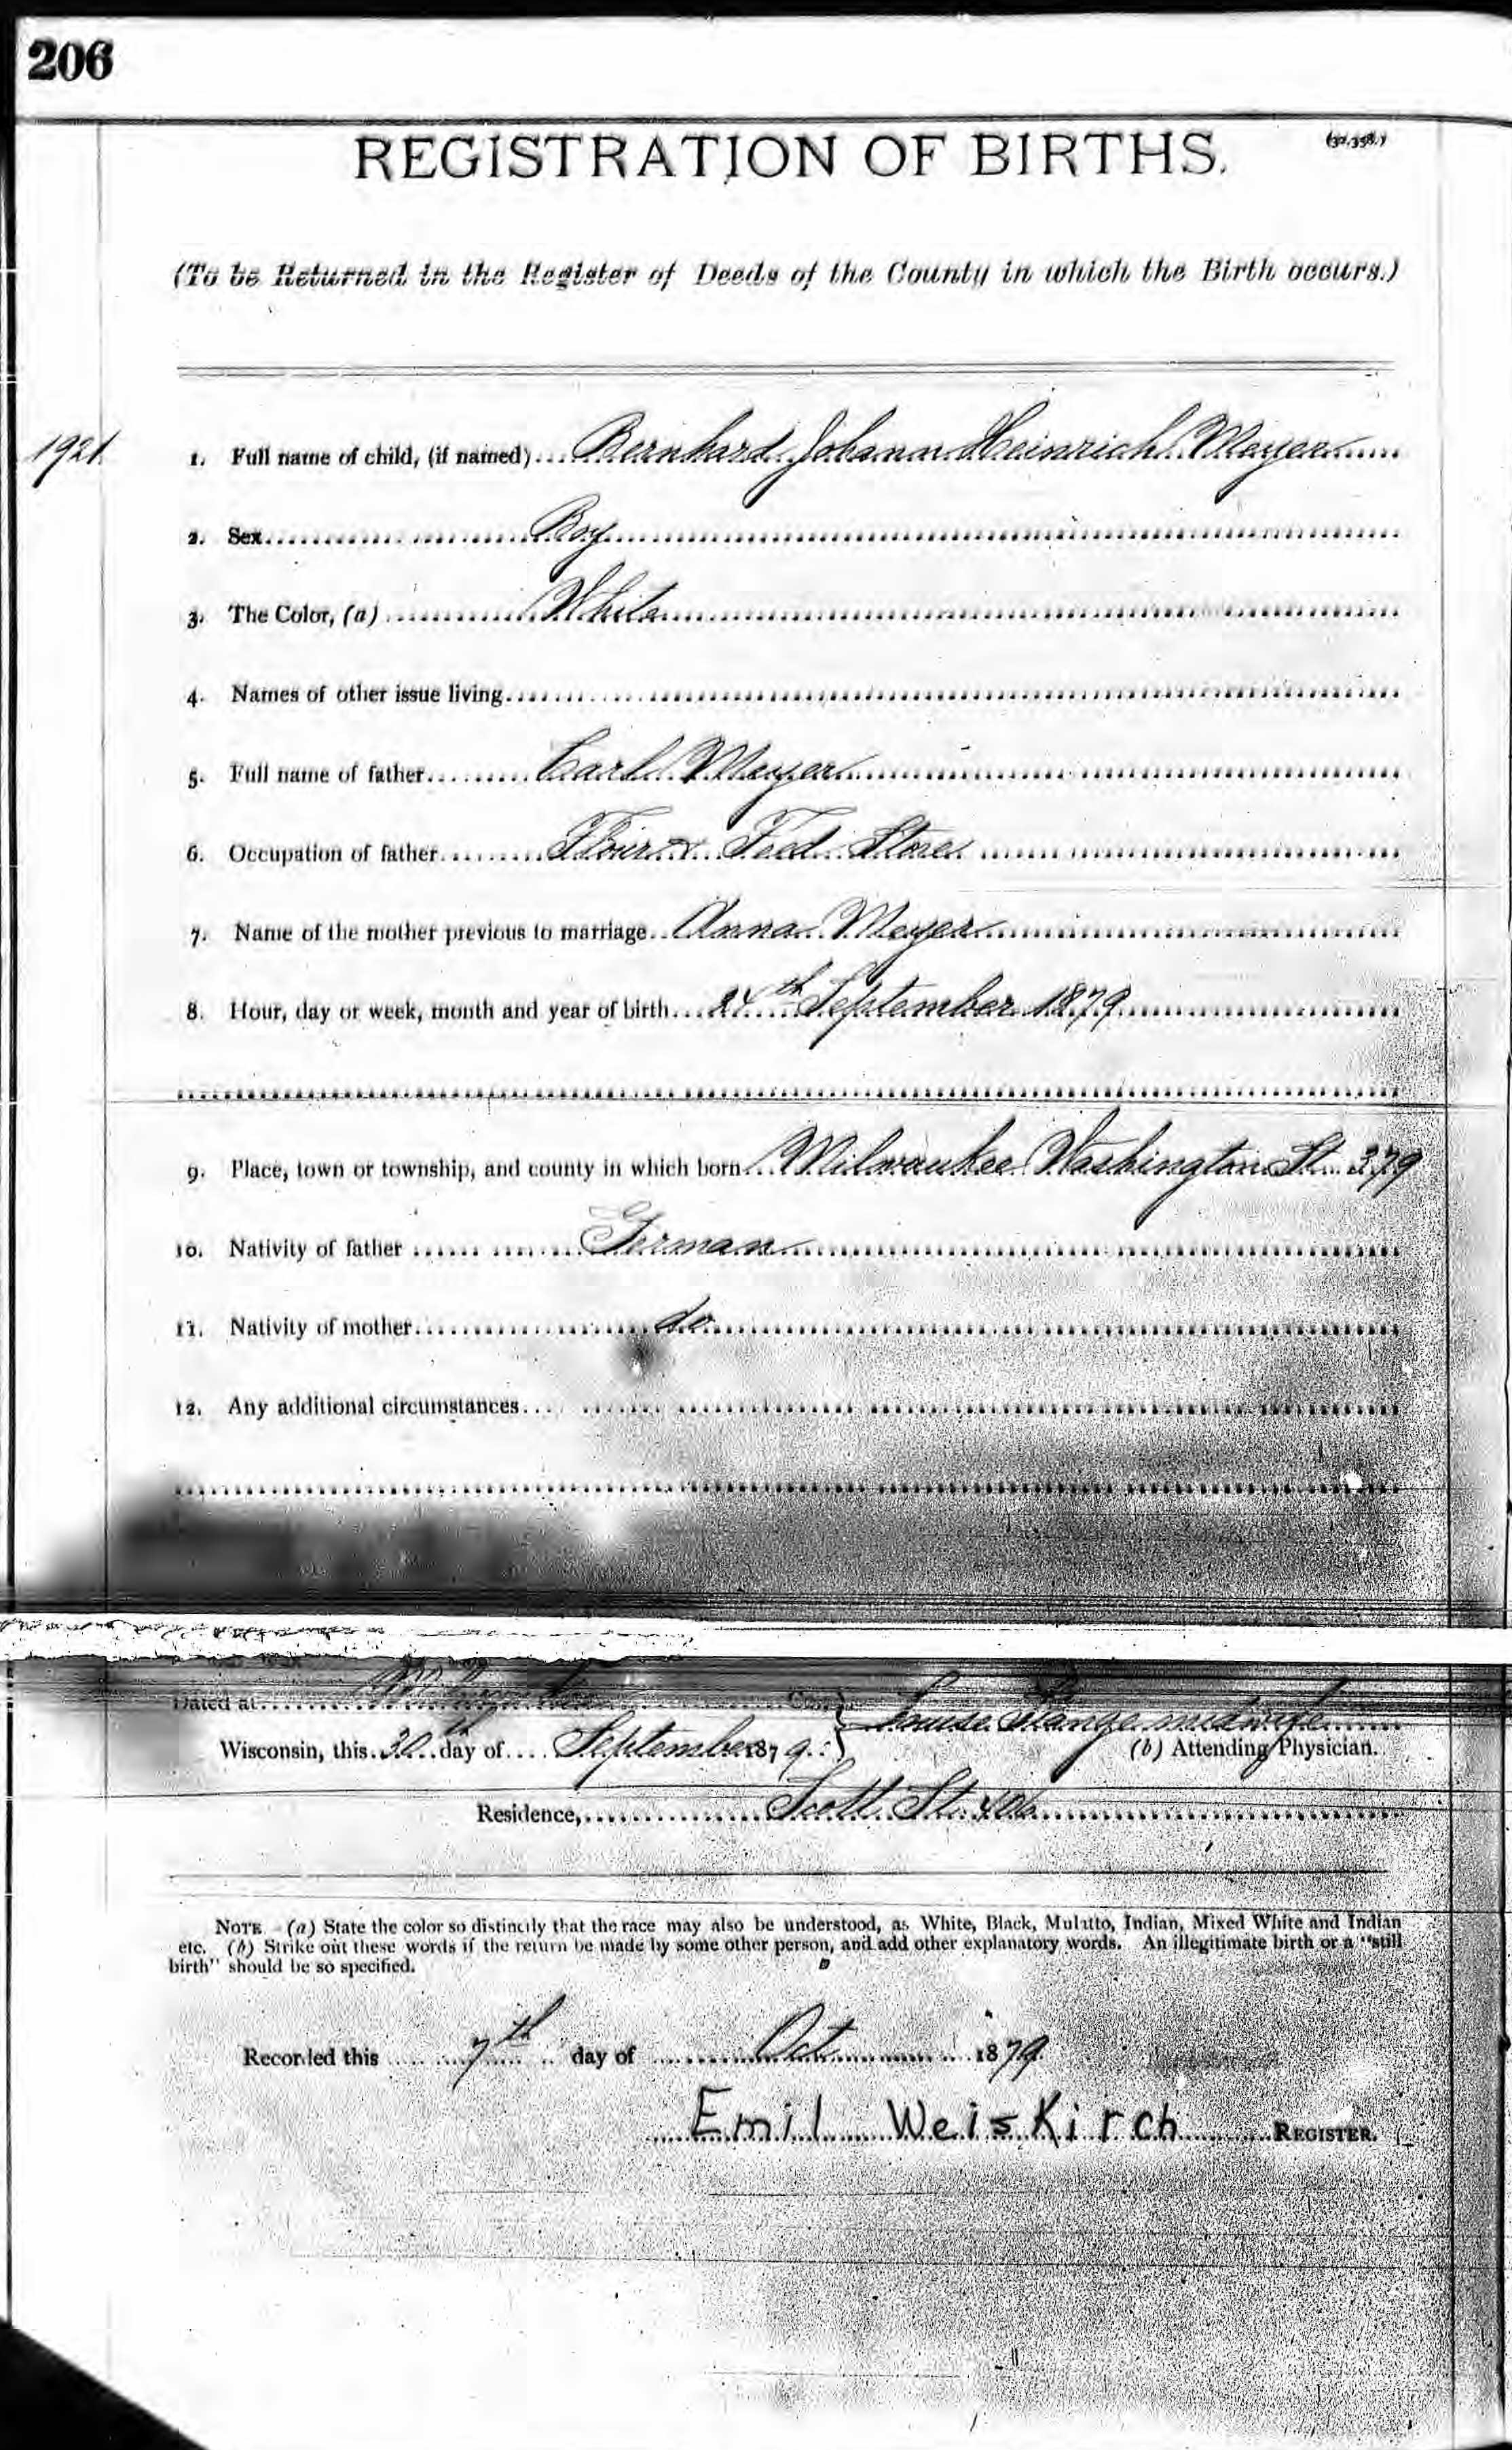 206
REGISTRATION OF BIRTHS.
(To be Returned in the Register of Deeds of the County in which the Birth occurs.)
1921
1. Full name of child, (if named) Bernhard Johann Heinrich Meyer
2. Sex Boy
3. The Color, (a) White
4. Names of other issue living
5. Full name of father Carl Meyer
6. Occupation of father Flour & Feed Store
7. Name of the mother previous to marriage Anna Meyer
8. Hour, day or week, month and year of birth 24th September 1879
9. Place, town or township, and county in which born Milwaukee Washington St. 379
10. Nativity of father German
11. Nativity of mother do
12. Any additional circumstances
Dated at Milwaukee Louise Stange midwife
Wisconsin, this 30th day of September 1879. (b) Attending Physician.
Residence, Scott St. 406
NOTE (a) State the color so distinctly that the race may also be understood, as White, Black, Mulatto, Indian, Mixed White and Indian
etc. (b) Strike out these words if the return be made by some other person, and add other explanatory words. An illegitimate birth or a "still
birth" should be so specified.
Recorded this 7th day of Oct 1879.
Emil Weiskirch REGISTER.